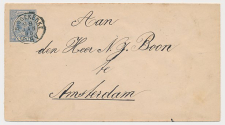 Aan
den Heer N. J. Boon
te
Amsterdam